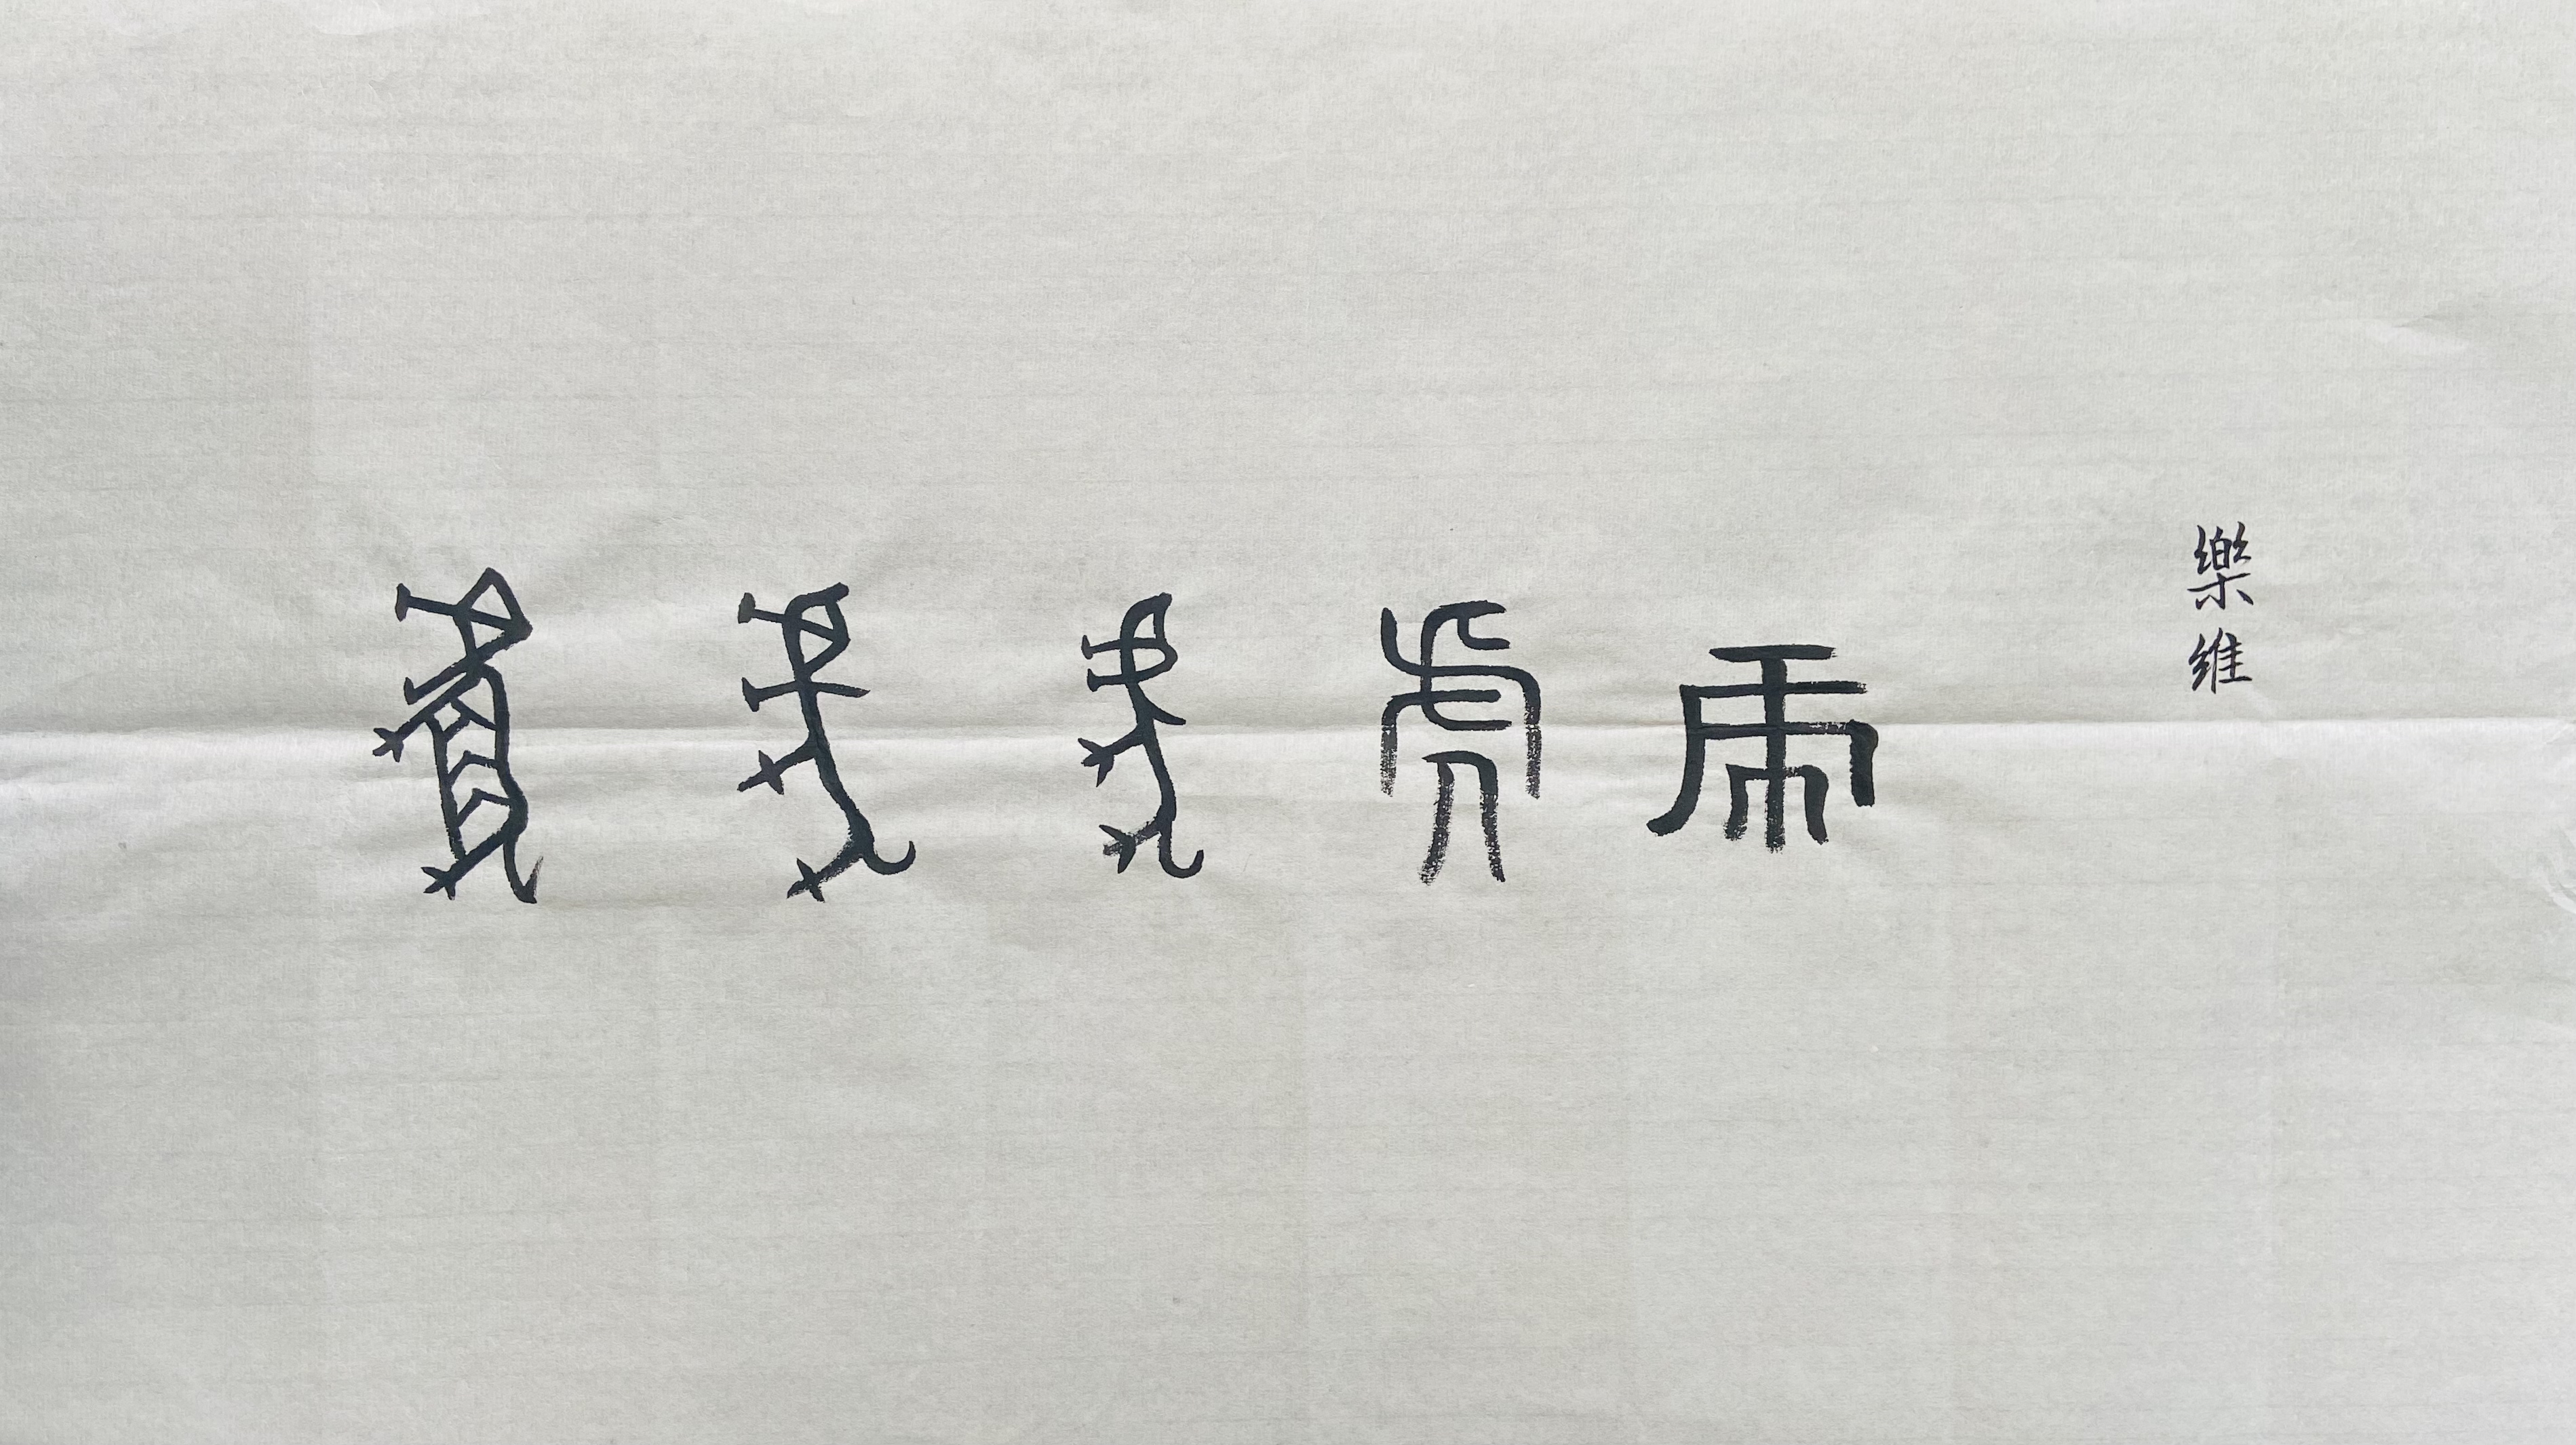 虎虎虎虎虎
樂維